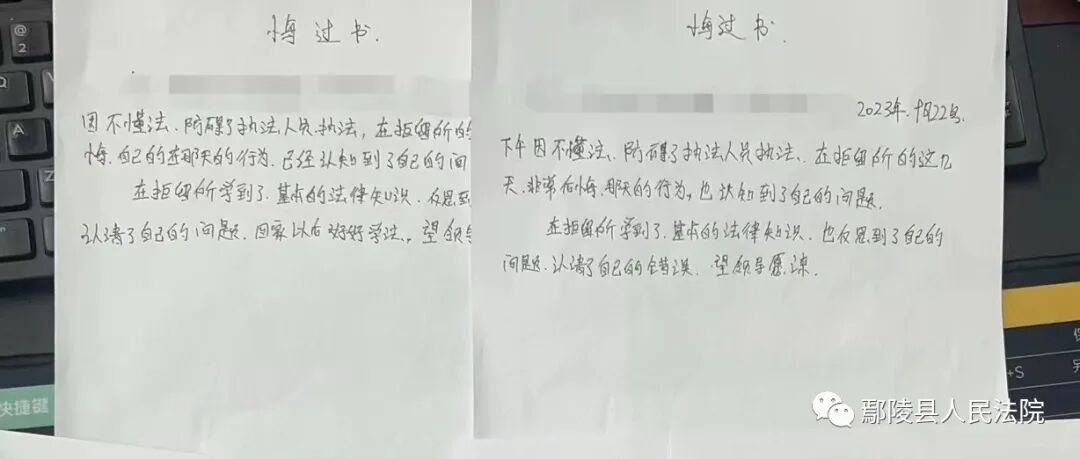 悔过书.
因不懂法、防碍了执法人员执法，在拒留所的
悔.自己的在那天的行为.已经认知到了自己的问
在拒留所学到了.基本的法律知识.反思到
认清了自己的问题.回家以后好好学法，望领导
悔过书.
2023年.9月22号.
下午因不懂法、防碍了执法人员执法、在拒留所的这几
天.非常后悔.那天的行为，也认知到了自己的问题.
在拒留所学到了.基本的法律知识.也反思到了自己的
问题.认清了自己的错误.望领导愿谅.
@
2
W
S
X
快捷键
+S
鄢陵县人民法院